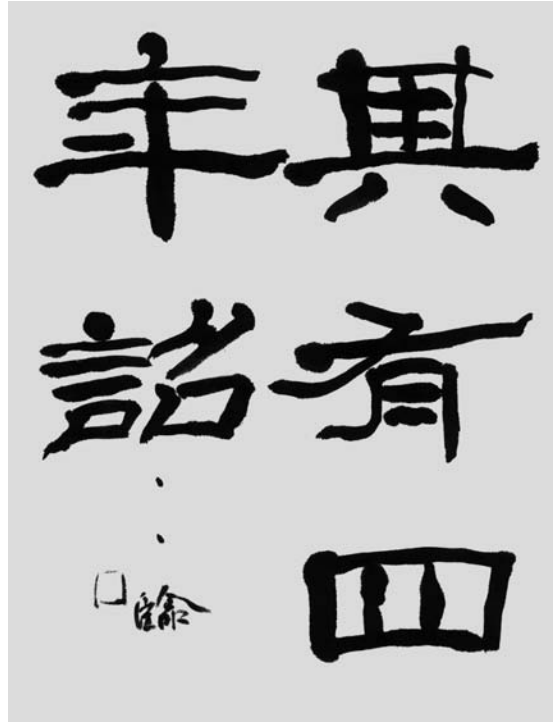 其有四
年詔